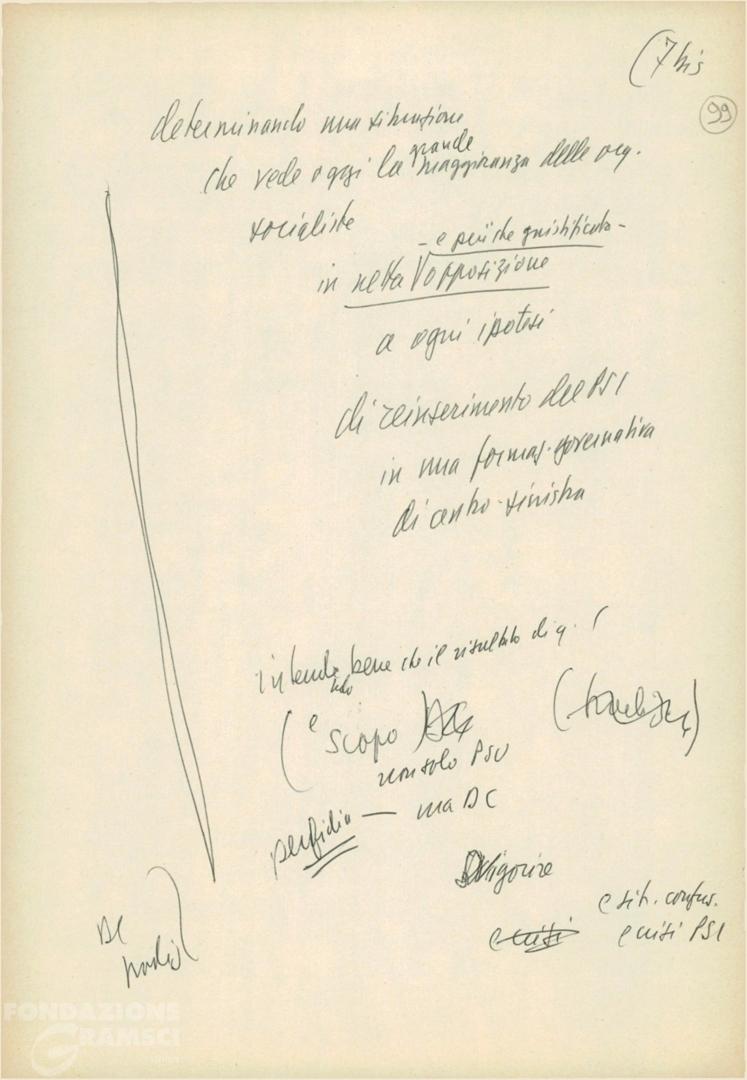 (7 bis
99
determinando una situazione
che vede oggi la grande maggioranza delle org.
socialiste
- e più che giustificata -
in netta opposizione
a ogni ipotesi
di reinserimento del PSI
in una formaz. governativa
di centro-sinistra
intende bene che il risultato di q.
(e scopo)
non solo PSU
perfidia — ma DC
e sit. confus.
e crisi
e crisi PSI
DC
FONDAZIONE
GRAMSCI